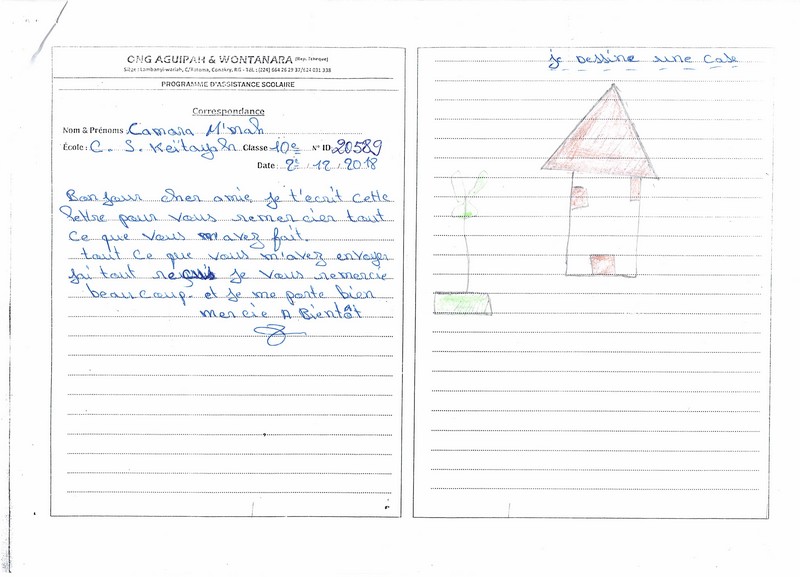 ONG AGUIPAH & WONTANARA (Rep. Tcheque)
Siège : Lambanyi-wariah, C/Ratoma, Conakry, RG - Tél. : (224) 664 26 29 37/624 031 338
PROGRAMME D'ASSISTANCE SCOLAIRE
Correspondance
Nom & Prénoms : Camara M'mah
École : C. S. Keitayah Classe 10e N° ID 20589
Date : 2 / 12 / 2018
Bonjour cher amie, je t'ecrit cette
lettre pour vous remercier tout
ce que vous m'avez fait.
tout ce que vous m'avez envoyer
jai tout reçus je vous remercie
beaucoup. et je me porte bien
mercie A Bientôt
je dessine une case